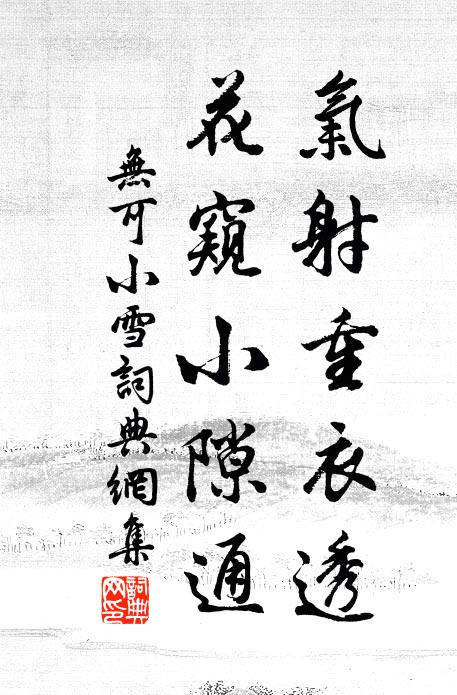 氣射重衣透
花窺小隙通
無可小雪詞典網集
詞典網印